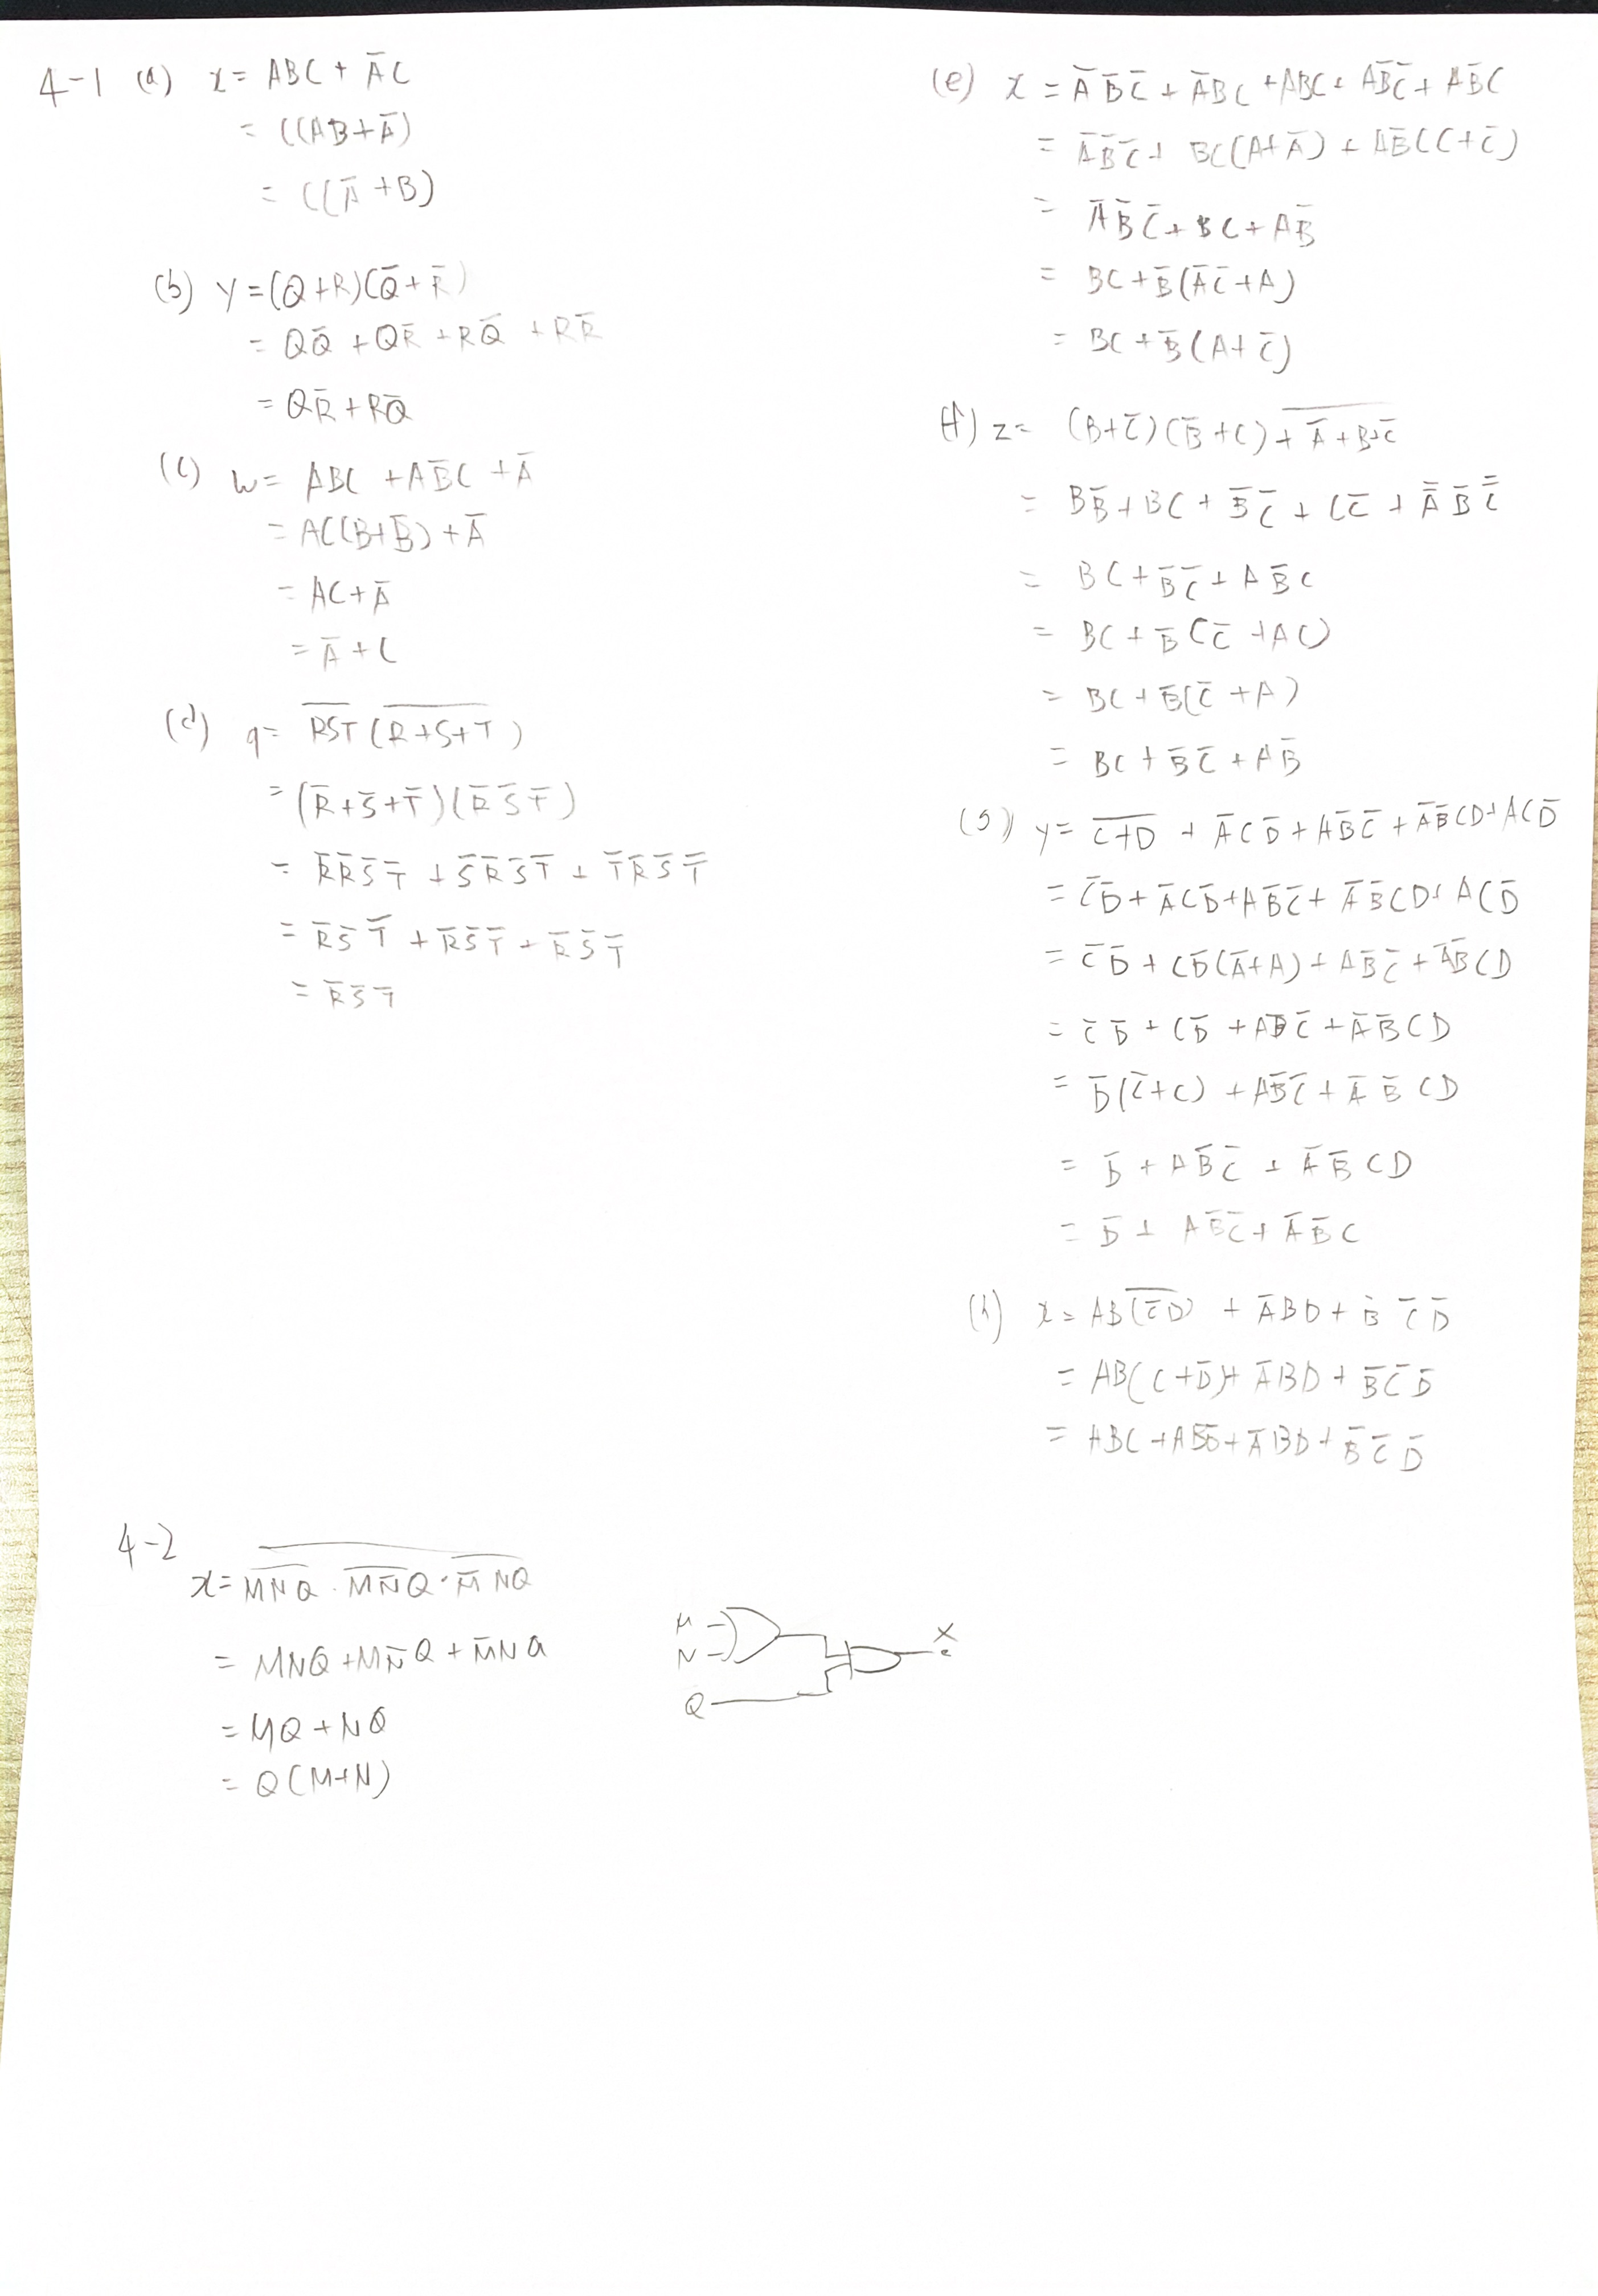 4-1 (a) x = ABC + A̅C
= C(AB+A̅)
= C(A̅+B)
(b) y = (Q+R)(Q̅+R̅)
= QQ̅ + QR̅ + RQ̅ + RR̅
= QR̅ + RQ̅
(c) w = ABC + AB̅C + A̅
= AC(B+B̅) + A̅
= AC + A̅
= A̅ + C
(d) q = R̅S̅T̅ (R̅+̅S̅+̅T̅)
= (R̅+S̅+T̅)(R̅ S̅ T̅)
= R̅R̅S̅T̅ + S̅R̅S̅T̅ + T̅R̅S̅T̅
= R̅S̅T̅ + R̅S̅T̅ + R̅S̅T̅
= R̅S̅T̅
(e) x = A̅B̅C̅ + A̅BC + ABC + AB̅C̅ + AB̅C
= A̅B̅C̅ + BC(A+A̅) + AB̅(C+C̅)
= A̅B̅C̅ + BC + AB̅
= BC + B̅(A̅C̅+A)
= BC + B̅(A+C̅)
(f) z = (B+C̅)(B̅+C) + A̅̅+̅B̅+̅C̅̅
= BB̅ + BC + B̅C̅ + CC̅ + A̅̅ B̅ C̅̅
= BC + B̅C̅ + AB̅C
= BC + B̅(C̅ + AC)
= BC + B̅(C̅ + A)
= BC + B̅C̅ + AB̅
(g) y = C̅+̅D̅ + A̅CD̅ + AB̅C̅ + A̅B̅CD + ACD̅
= C̅D̅ + A̅CD̅ + AB̅C̅ + A̅B̅CD + ACD̅
= C̅D̅ + CD̅(A̅+A) + AB̅C̅ + A̅B̅CD
= C̅D̅ + CD̅ + AB̅C̅ + A̅B̅CD
= D̅(C̅+C) + AB̅C̅ + A̅B̅CD
= D̅ + AB̅C̅ + A̅B̅CD
= D̅ + AB̅C̅ + A̅B̅C
(h) x = AB(C̅̅D̅) + A̅BD + B̅ C̅ D̅
= AB(C+D̅) + A̅BD + B̅C̅D̅
= ABC + ABD̅ + A̅BD + B̅C̅D̅
4-2
x = M̅N̅Q̅ · M̅N̅̅Q̅ · M̅̅N̅Q̅
= MNQ + MN̅Q + M̅NQ
= MQ + NQ
= Q(M+N)
M
N
Q
X